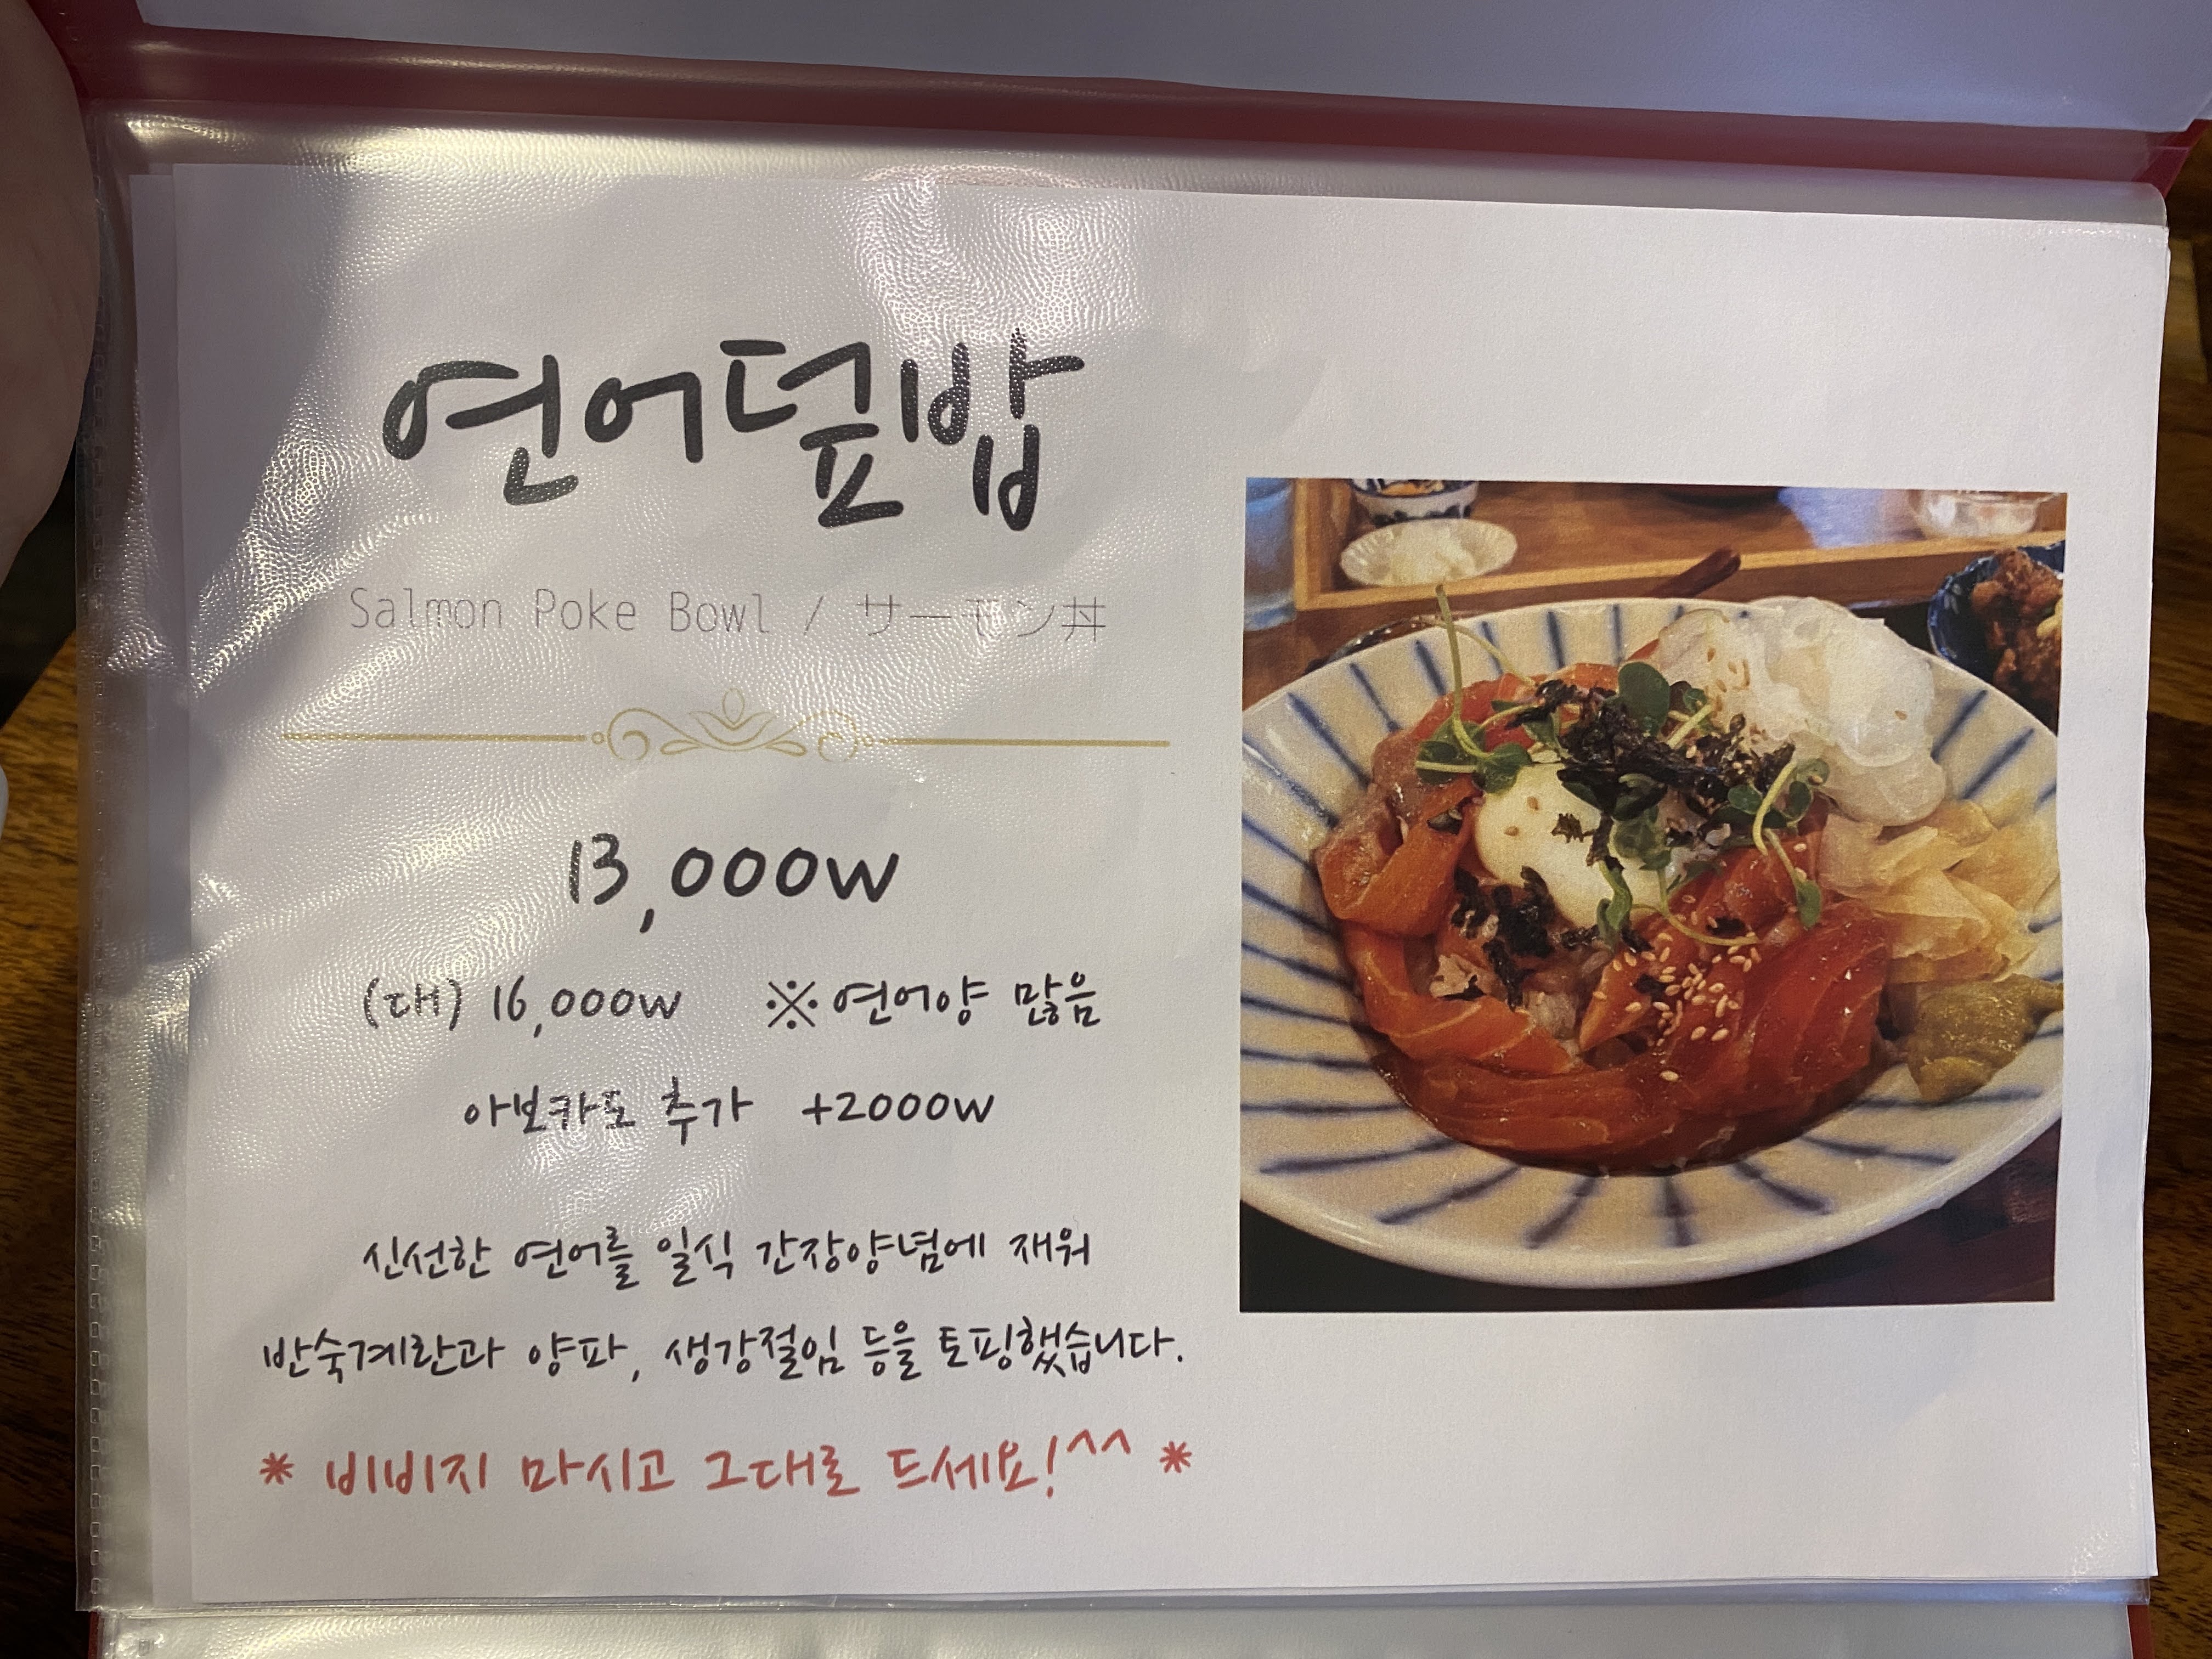 연어덮밥
Salmon Poke Bowl / サーモン丼
13,000w
(대) 16,000w ※연어양 많음
아보카도 추가 +2000w
신선한 연어를 일식 간장양념에 재워
반숙계란과 양파, 생강절임 등을 토핑했습니다.
* 비비지 마시고 그대로 드세요!^^ *